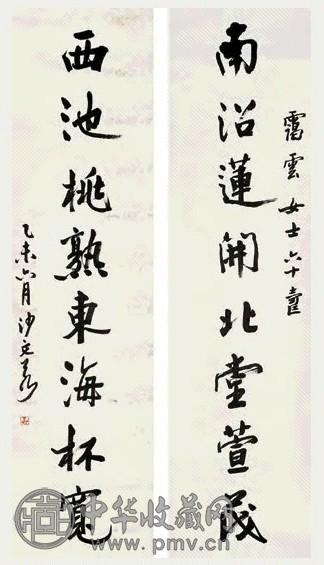 靄雲女士六十壽
南沼蓮開北堂萱茂
西池桃熟東海杯寬
乙未六月沙
中华收藏网
www.pmv.cn